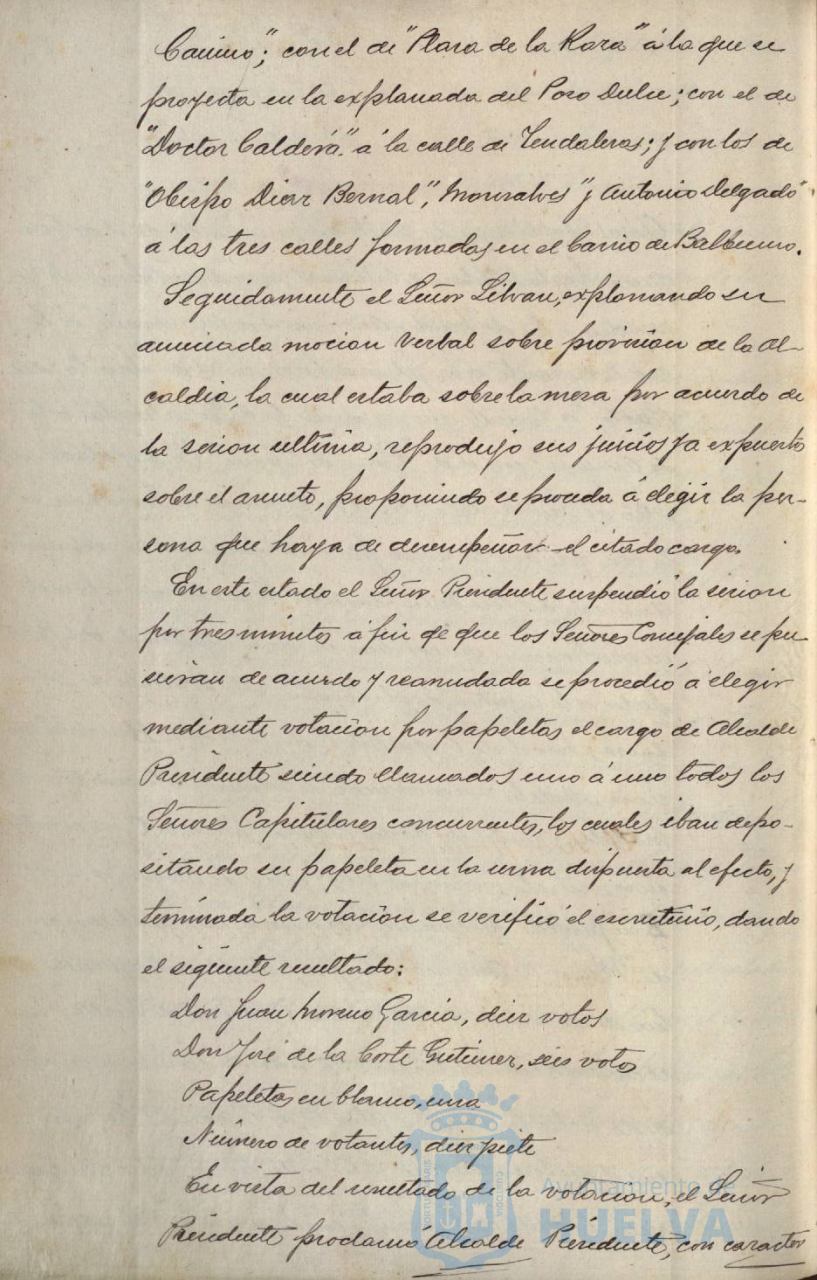 Camino"; con el de "Plaza de la Raza" á la que se
proyecta en la explanada del Pozo Dulce; con el de
"Doctor Caldera" á la calle de Tendaleras; y con los de
"Obispo Diaz Bernal", Monsalves" y Antonio Delgado"
á las tres calles formadas en el barrio de Balbueno.
Seguidamente el Señor Silvan, explanando su
anunciada mocion verbal sobre provision de la Al-
caldia, la cual estaba sobre la mesa por acuerdo de
la sesion ultima, reprodujo sus juicios ya expuestos
sobre el asunto, proponiendo se proceda á elegir la per-
sona que haya de desempeñar el citado cargo.
En este estado el Señor Presidente suspendió la sesion
por tres minutos á fin de que los Señores Concejales se pu
sieran de acuerdo y reanudada se procedió á elegir
mediante votacion por papeletas el cargo de Alcalde
Presidente siendo llamados uno á uno todos los
Señores Capitulares concurrentes, los cuales iban depo-
sitando su papeleta en la urna dispuesta al efecto, y
terminada la votacion se verificó el escrutinio, dando
el siguiente resultado:
Don Juan Moreno Garcia, diez votos
Don José de la Corte Gutierrez, seis votos
Papeletas en blanco, una
Número de votantes, diez y siete
En vista del resultado de la votacion, el Señor
Presidente proclamó Alcalde Presidente, con caracter
Ayuntamiento de
HUELVA